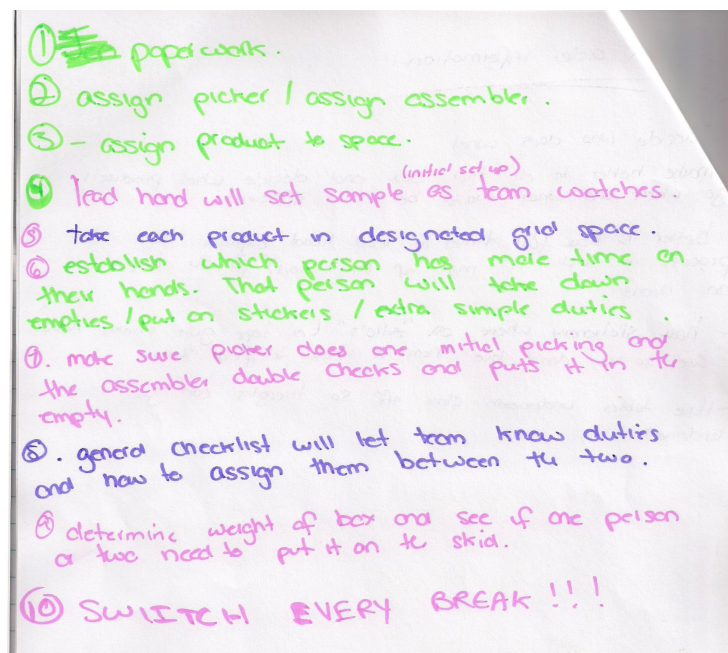 ① paperwork.
② assign picker / assign assembler.
③ - assign product to space.
(initial set up)
④ lead hand will set sample as team watches
⑤ take each product in designated grid space.
⑥ establish which person has more time on
their hands. That person will take down
empties / put on stickers / extra simple duties.
⑦. make sure picker does one initial picking and
the assembler double checks and puts it in the
empty.
⑧. general checklist will let team know duties
and how to assign them between the two.
⑨ determine weight of box and see if one person
or two need to put it on the skid.
⑩ SWITCH EVERY BREAK!!!